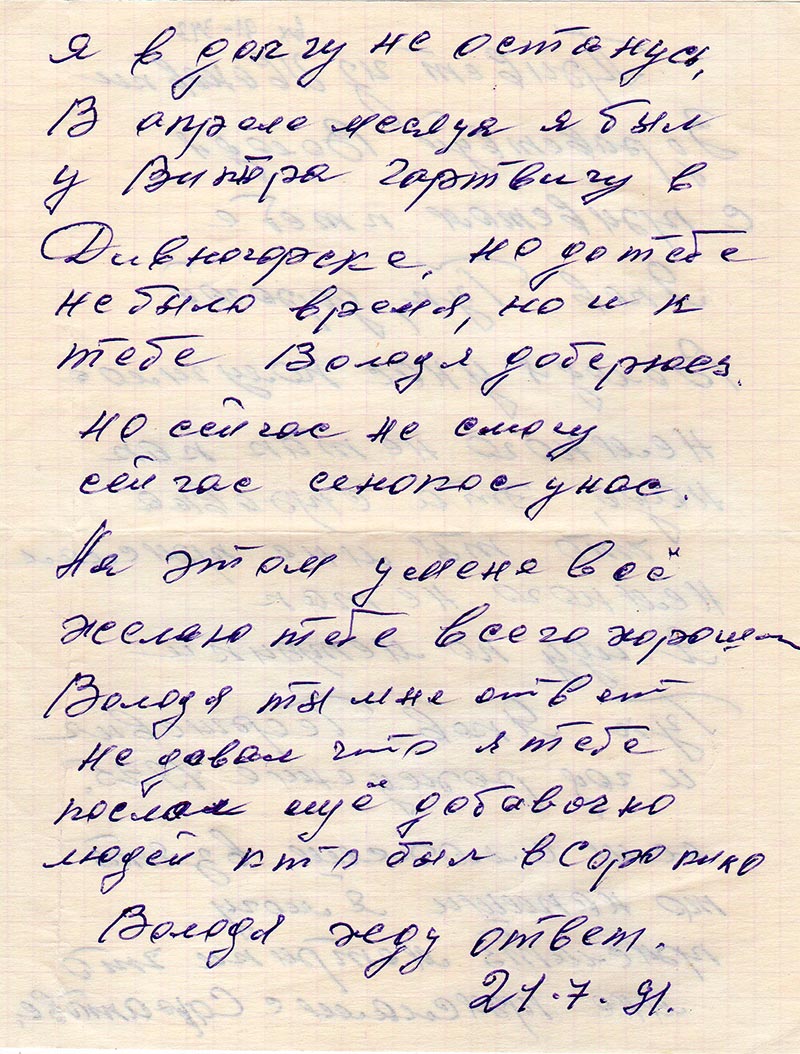 я в долгу не останусь,
В апреле месяця я был
у Виктра Гартвигу в
Дивногорске, но до тебе
не было время, но и к
тебе Володя доберюсь.
но сейчас не смогу
сейчас сенокос у нас.
На этом у меня всё
желаю тебе всего хорошего
Володя ты мне ответ
не давал что я тебе
послал ищё добавочно
людей кто был в
Володя жду ответ.
21.7.91.